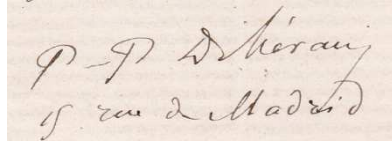 P-P Dehérain
15 rue de Madrid